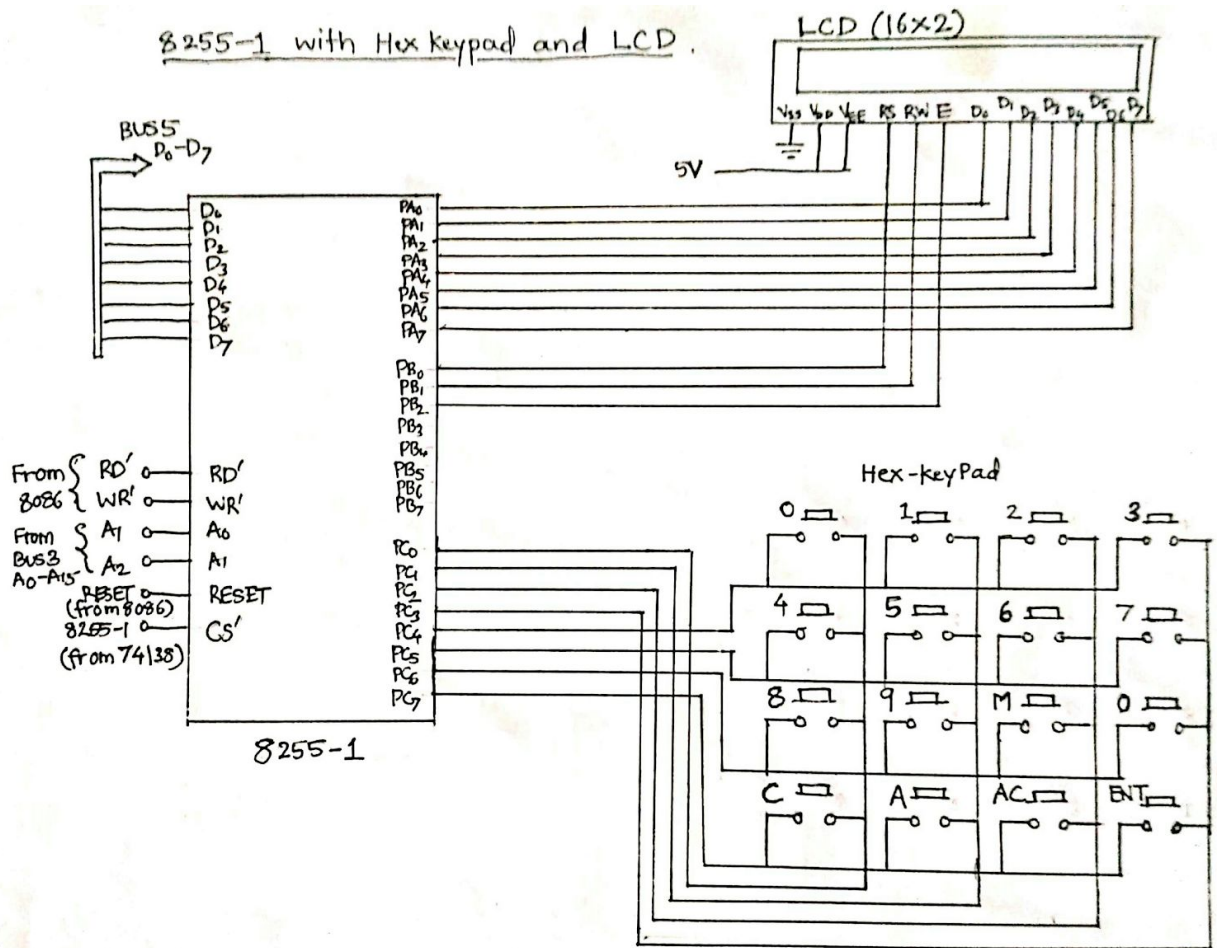 8255-1 with Hex keypad and LCD.
LCD (16×2)
VSS VDD VEE RS RW E D0 D1 D2 D3 D4 D5 D6 D7
BUS5
D0-D7
5V
D0
D1
D2
D3
D4
D5
D6
D7
PA0
PA1
PA2
PA3
PA4
PA5
PA6
PA7
PB0
PB1
PB2
PB3
PB4
PB5
PB6
PB7
PC0
PC1
PC2
PC3
PC4
PC5
PC6
PC7
From 8086 { RD' WR'
From Bus3 A0-A15 { A1 A2
RESET
(from 8086)
8255-1
(from 74138)
RD'
WR'
A0
A1
RESET
CS'
8255-1
Hex-keyPad
0 1 2 3
4 5 6 7
8 9 M 0
C A AC ENT